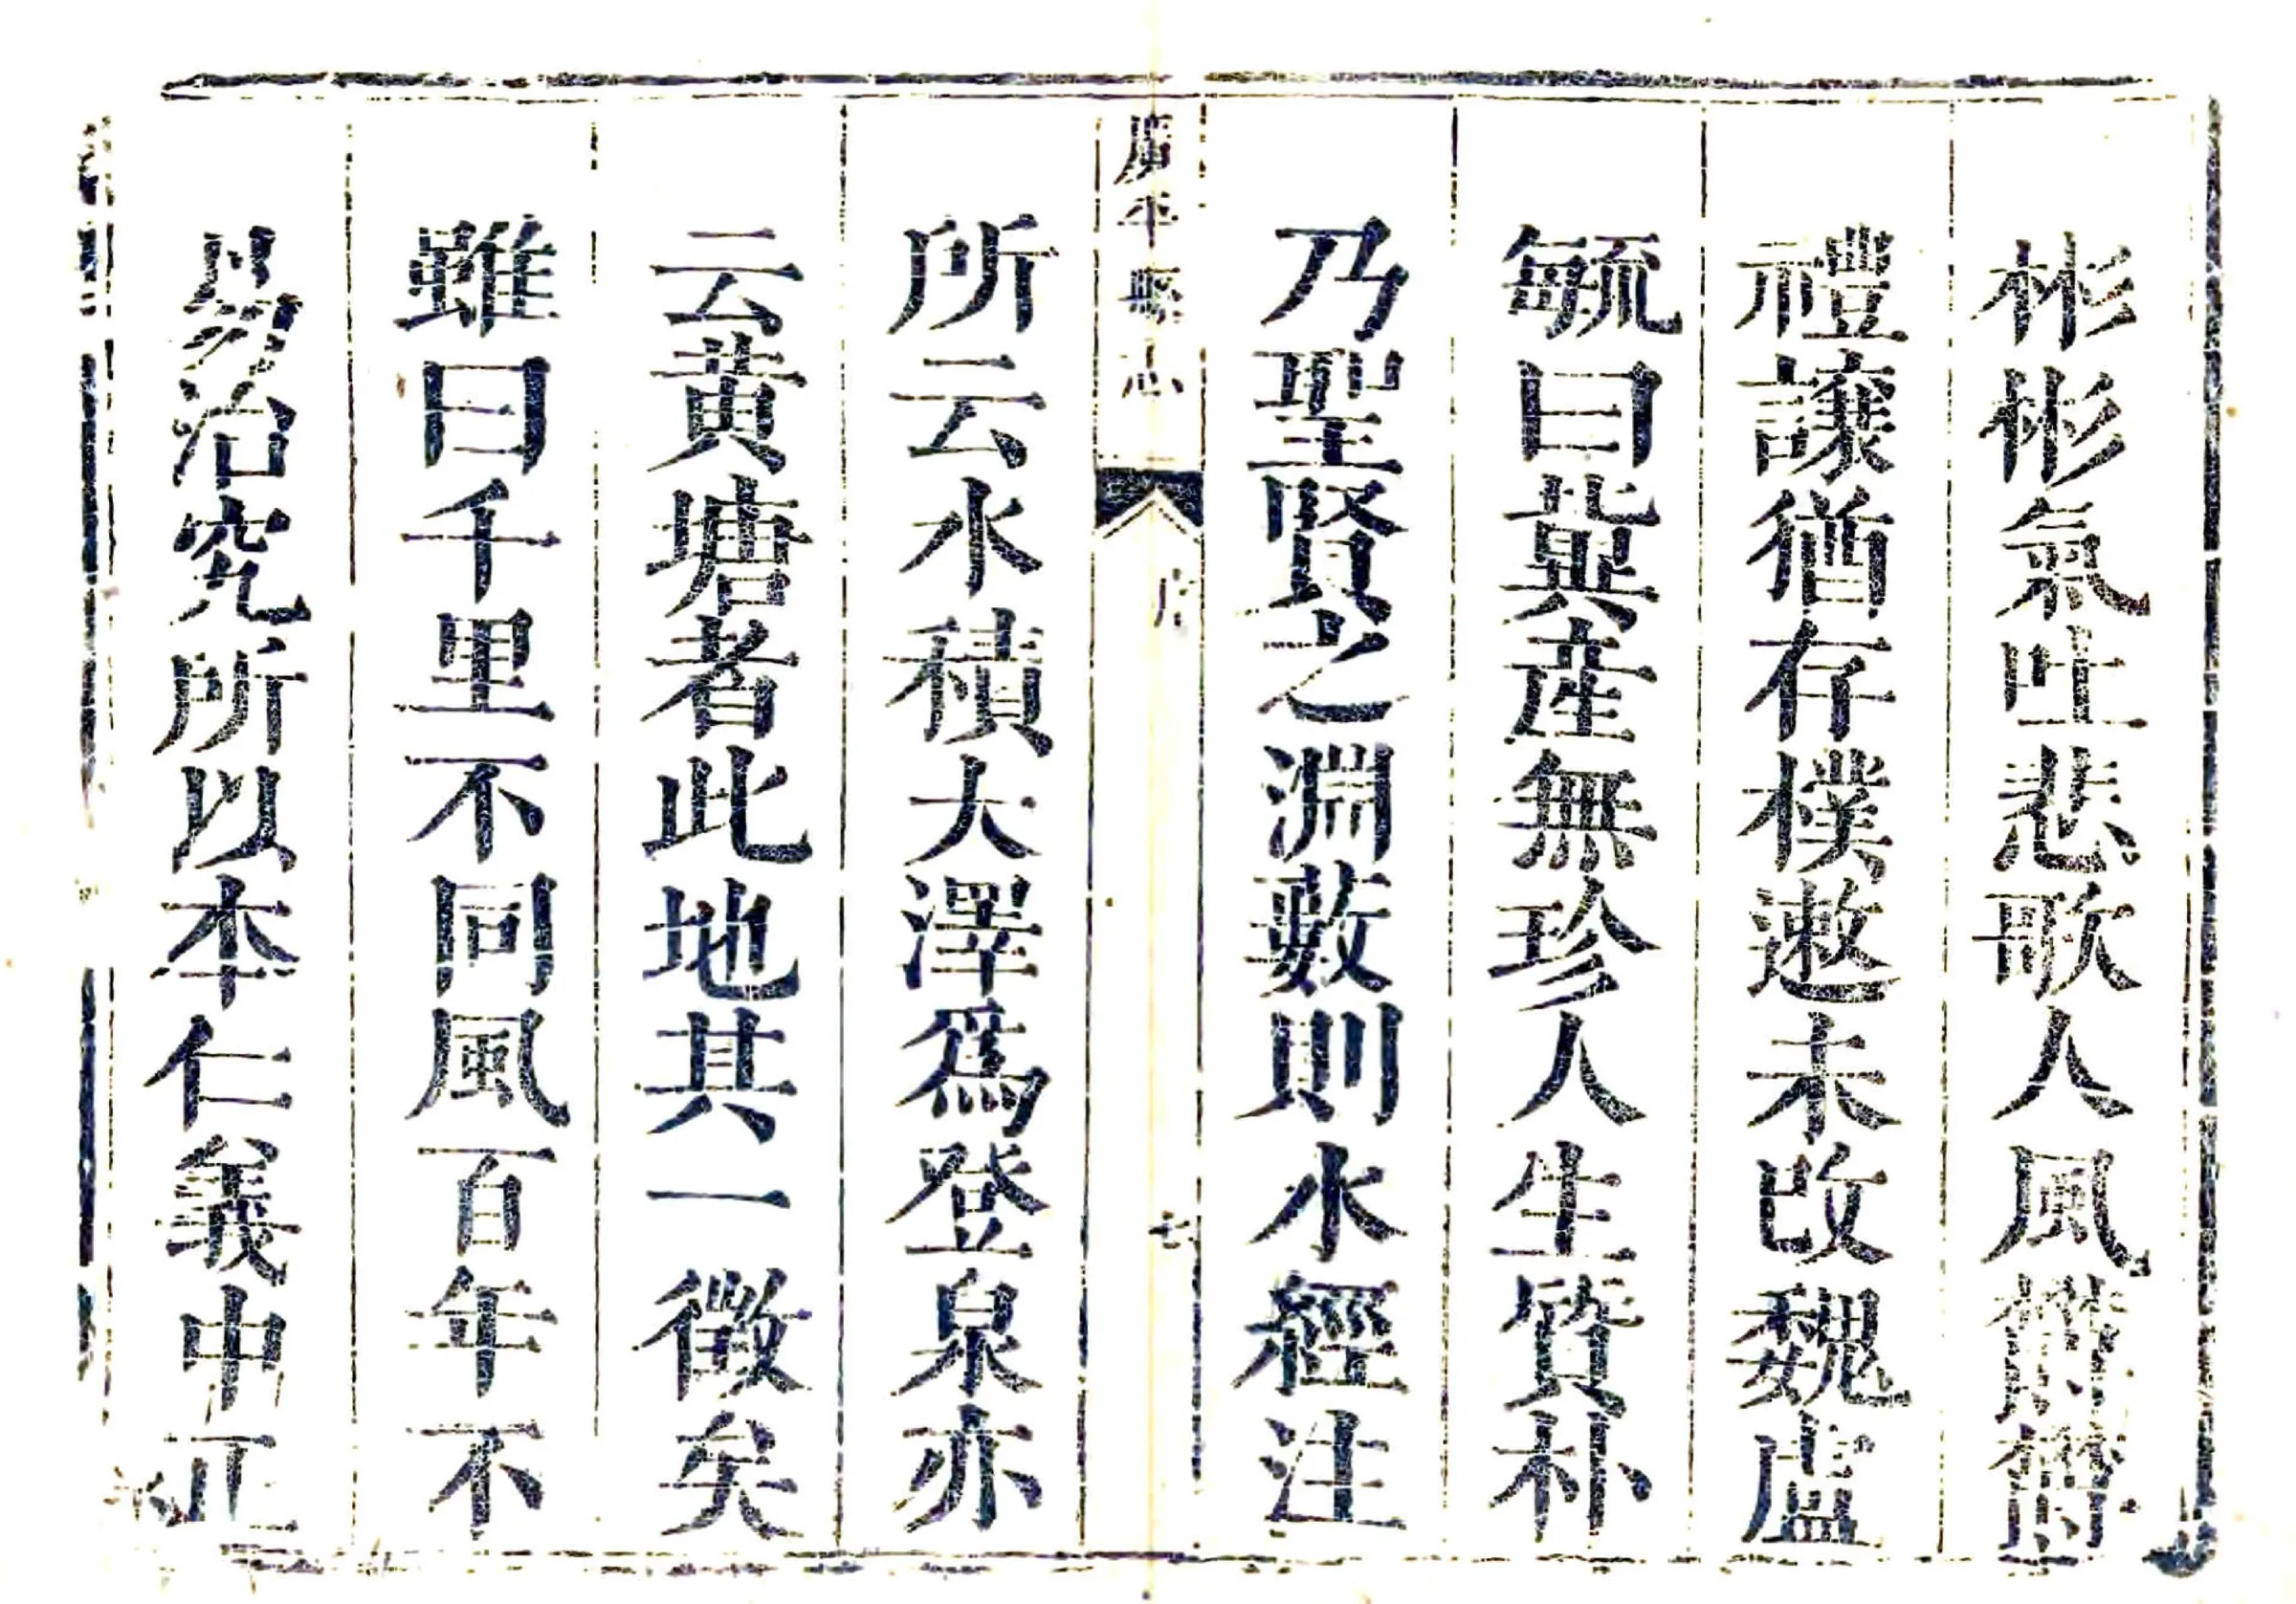 彬彬氣吐悲歌人風
禮讓猶存樸遬未改魏盧
毓曰冀産無珍人生質朴
乃聖賢之淵藪則水經注
廣平縣志
序
七
所云水積大澤爲登泉亦
云黄塘者此地其一徵矣
雖曰千里不同風百年不
易治究所以本仁義中正